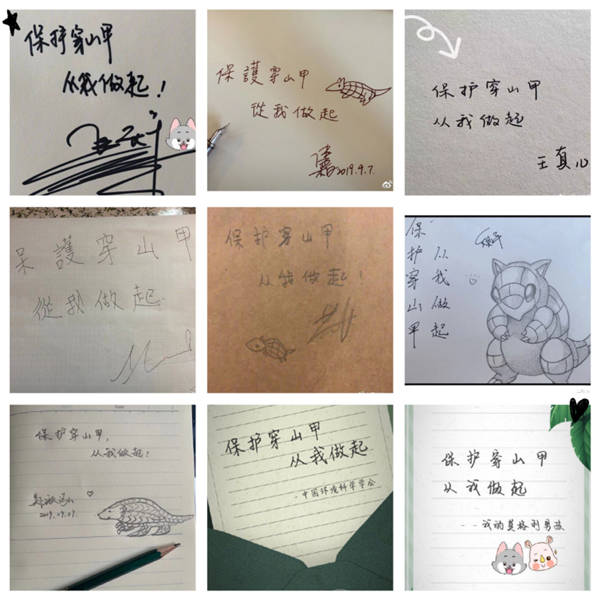 保护穿山甲
从我做起！
保護穿山甲
從我做起
2019.9.7.
保护穿山甲
从我做起
王真儿
保護穿山甲
從我做起
保护穿山甲
从我做起！
保护穿山甲
从我做起
保护穿山甲，
从我做起！
2019.09.07.
保护穿山甲
从我做起
-中国环境科学学会
保护穿山甲
从我做起
--我的莫格利男孩